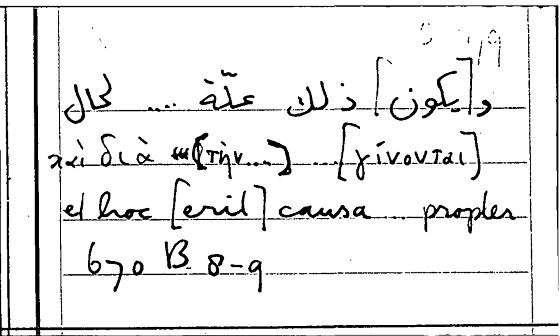 و[يكون] ذلك علّة .... لحال
καὶ διὰ [τὴν...] ...[γίνονται]
et hoc [erit] causa ... propter
670 B 8-9